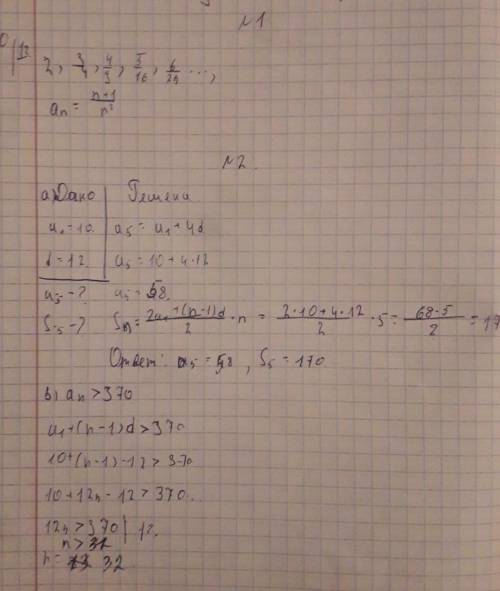 №1
2, 3/4, 4/9, 5/16, 6/25 ...,
aₙ = (n+1)/n²
№2
а) Дано | Решени
a₁ = 10. | a₅ = a₁ + 4d
d = 12. | a₅ = 10 + 4·12
a₅ - ? a₅ = 58.
S₅ - ? Sₙ = (2a₁ + (n-1)d)/2 · n = (2·10 + 4·12)/2 · 5 = (68·5)/2 = 17
Ответ: a₅ = 58, S₅ = 170.
b) aₙ > 370
a₁ + (n-1)d > 370
10 + (n-1)·12 > 370
10 + 12n - 12 > 370.
12n > 370 | 12.
n > 31
n = 32